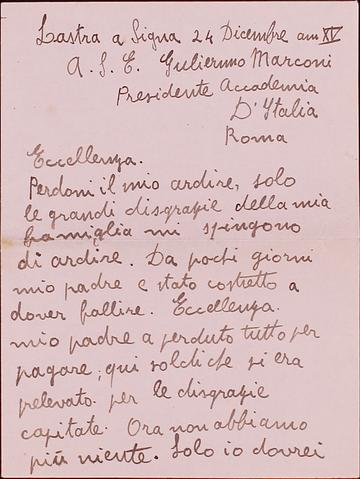 Lastra a Signa 24 Dicembre am XV
A. S. E. Guliermo Marconi
Presidente Accademia
D'Italia
Roma
Eccellenza.
Perdoni il mio ardire, solo
le grandi disgrazie della mia
famiglia mi spingono
di ardire. Da pochi giorni
mio padre e stato costretto a
dover fallire. Eccellenza.
mio padre a perduto tutto per
pagare, qui soldi che si era
pelevato per le disgrazie
capitate. Ora non abbiamo
più niente. Solo io dovrei